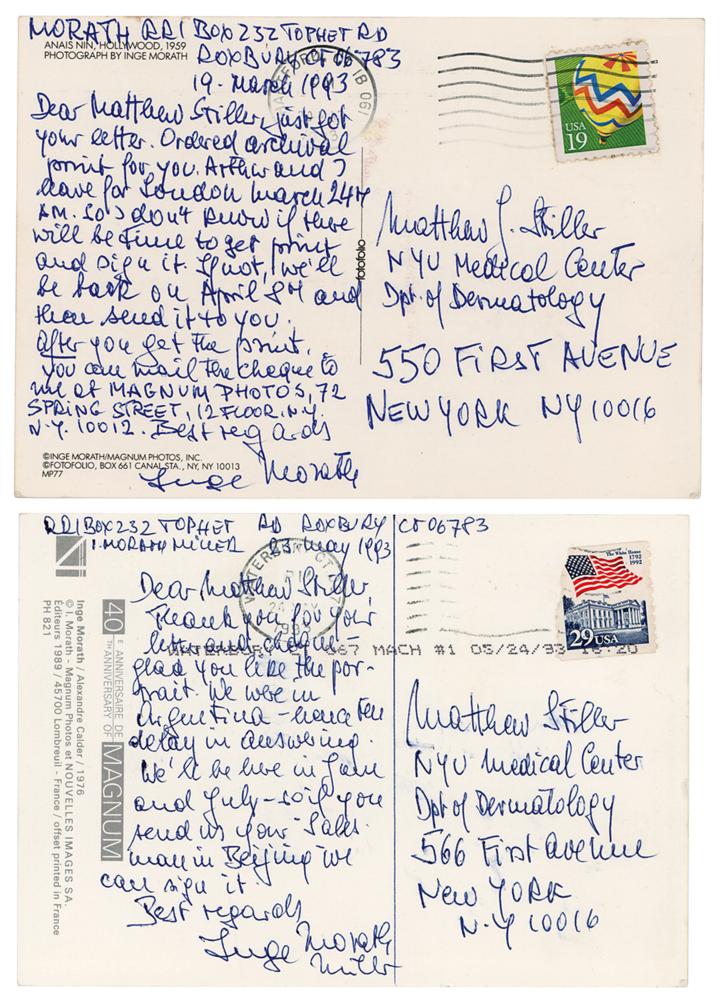 MORATH RR1 BOX 232 TOPHET RD
ANAIS NIN, HOLLYWOOD, 1959
PHOTOGRAPH BY INGE MORATH
ROXBURY CT 06783
19. March 1993
Dear Matthew Stiller, just got
your letter. Ordered archival
print for you. Arthur and I
leave for London March 24th
AM. So I don't know if there
will be time to get print
and sign it. If not, we'll
be back on April 8th and
then send it to you.
After you get the print,
you can mail the cheque to
me at MAGNUM PHOTOS, 72
SPRING STREET, 12 FLOOR, N.Y.
N.Y. 10012. Best regards
Inge Morath
©INGE MORATH/MAGNUM PHOTOS, INC.
©FOTOFOLIO, BOX 661 CANAL STA., NY, NY 10013
MP77
fotofolio
USA
19
Matthew J. Stiller
NYU Medical Center
Dpt. of Dermatology
550 FIRST AVENUE
NEW YORK NY 10016
RR1 BOX 232 TOPHET RD ROXBURY CT 06783
I. MORATH MILLER 23 May 1993
Dear Matthew Stiller,
Thank you for your
letter and cheque -
glad you like the por-
trait. We were in
Argentina - hence the
delay in answering.
We'll be here in June
and July - so if you
send us your 'Sales-
man in Beijing' we
can sign it.
Best regards
Inge Morath
Miller
WATERBURY CT
MACH #1 05/24/93 16:20
The White House
1792
1992
29 USA
Matthew Stiller
NYU Medical Center
Dpt of Dermatology
566 First avenue
New YORK
N.Y 10016
40E ANNIVERSAIRE DE
TH ANNIVERSARY OF MAGNUM
Inge Morath / Alexandre Calder / 1976
© I. Morath - Magnum Photos et NOUVELLES IMAGES SA.
Éditeurs 1989 / 45700 Lombreuil - France / offset printed in France
PH 821